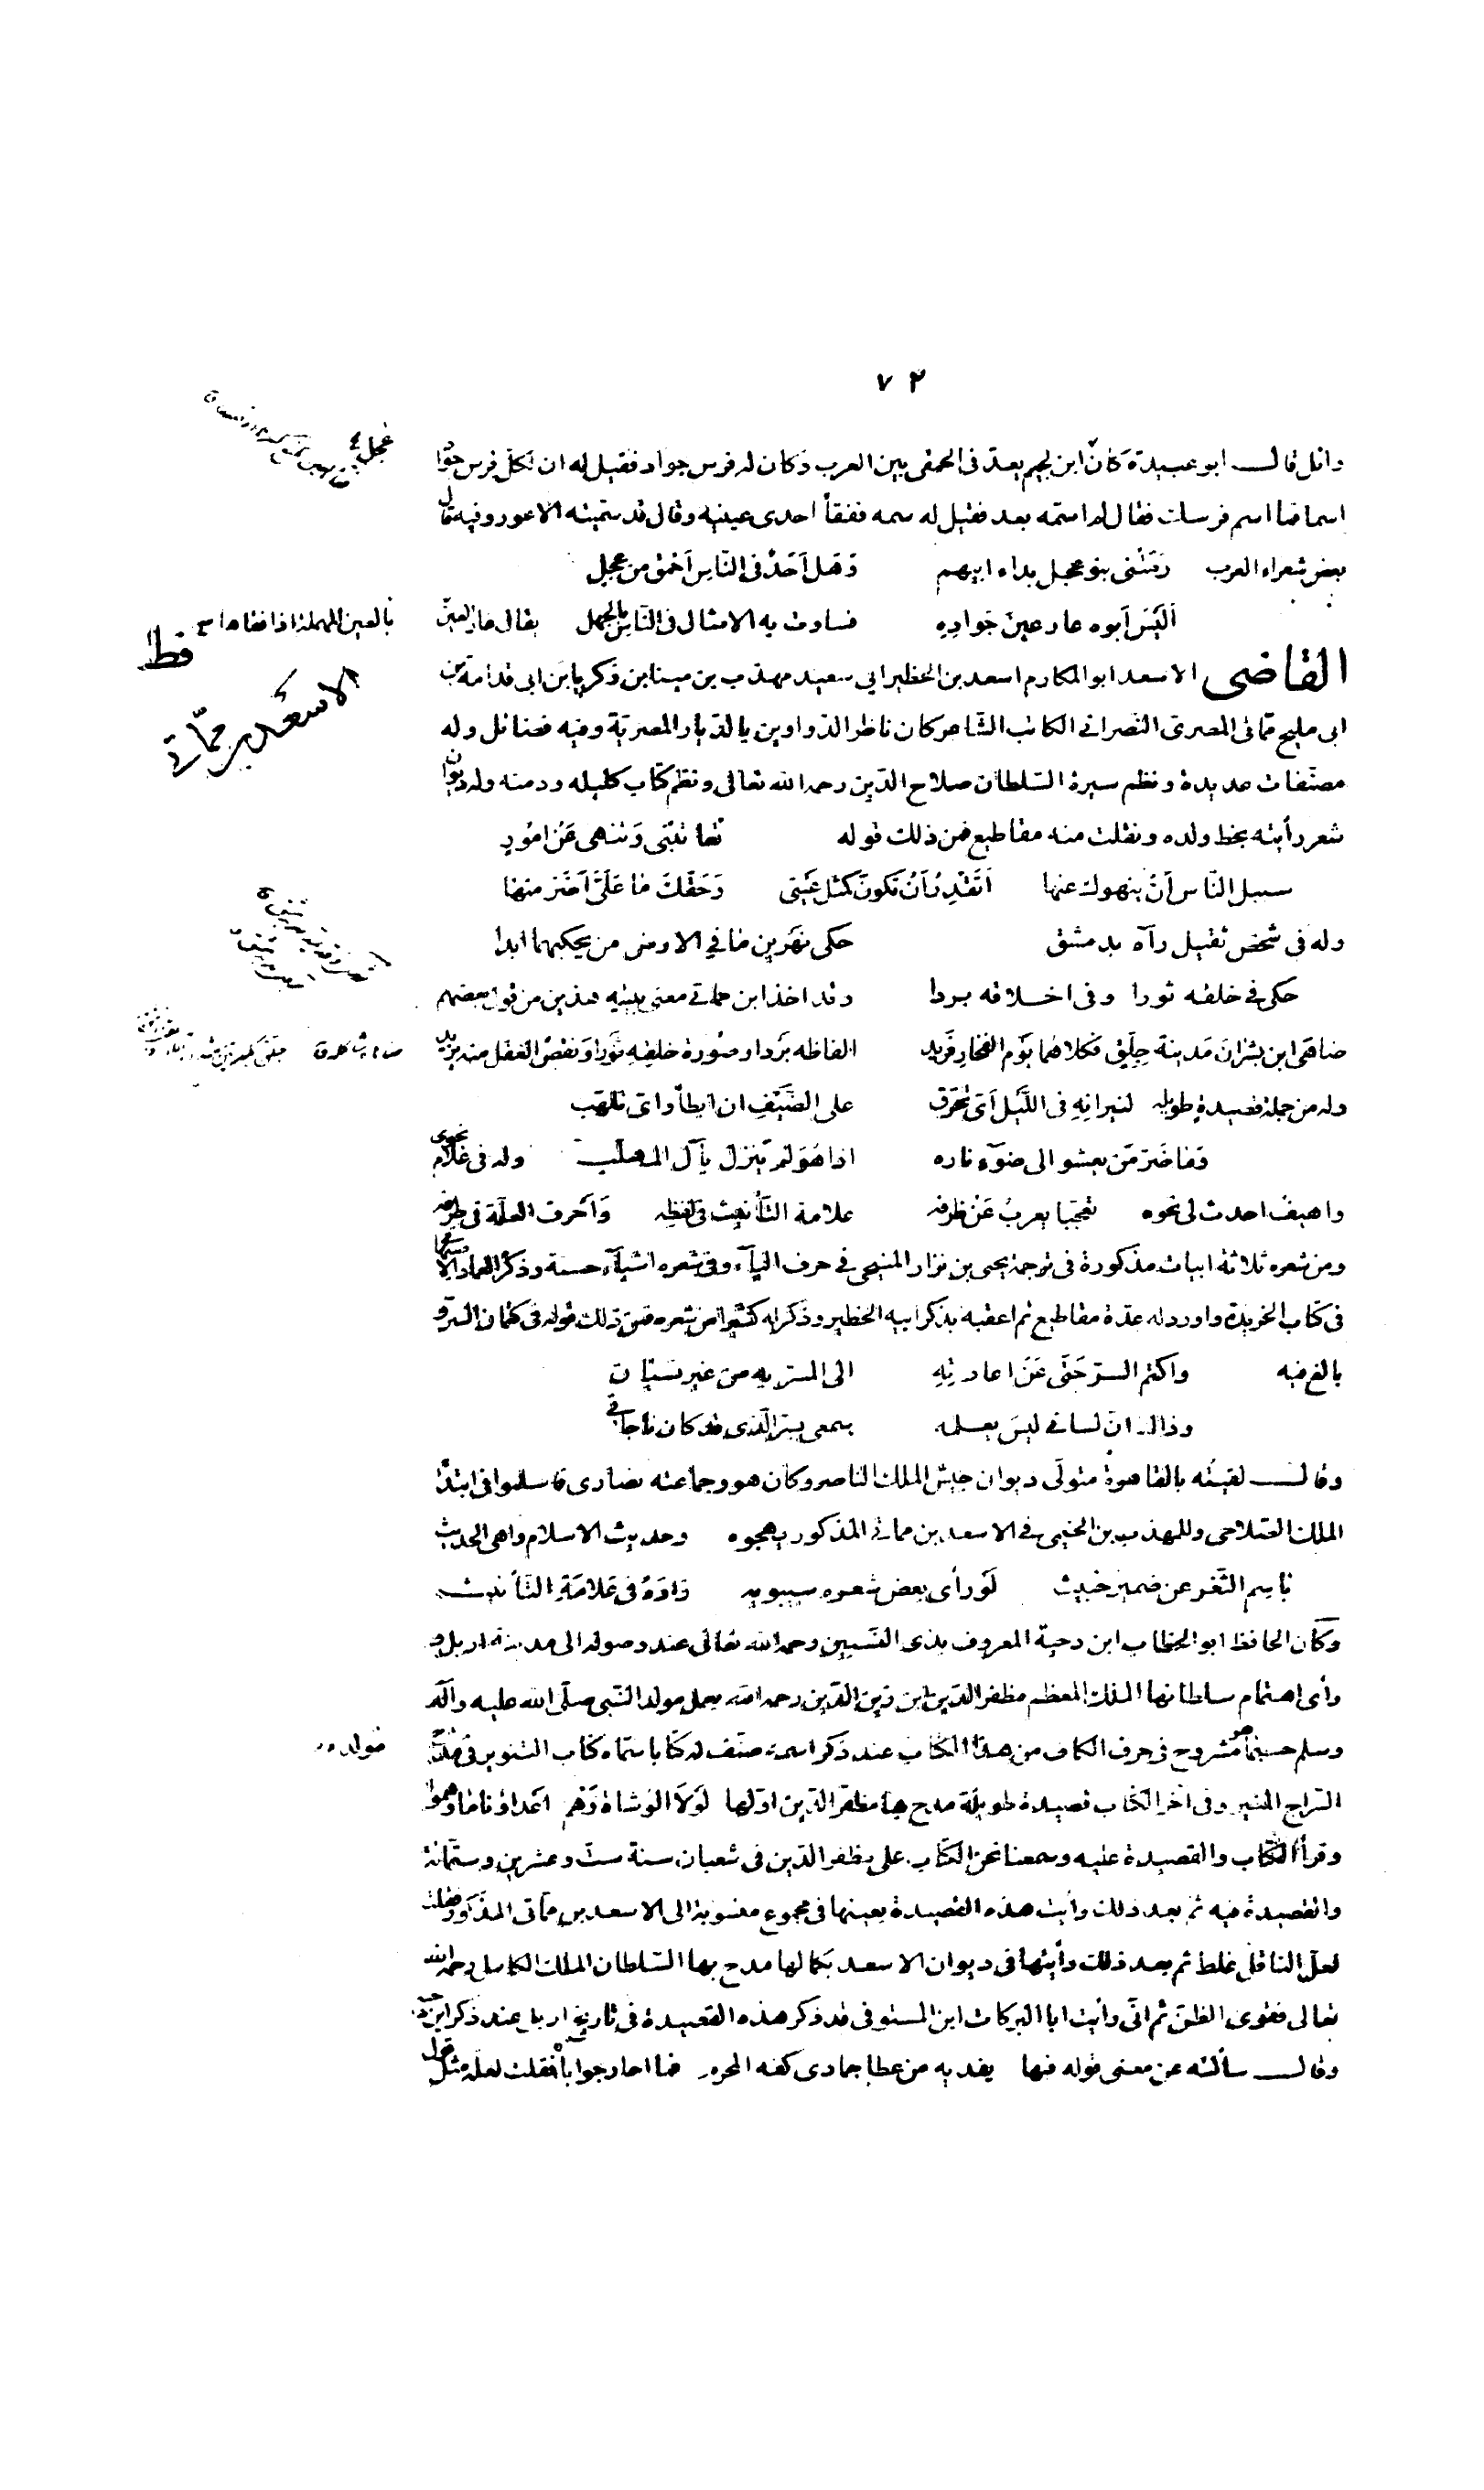 ٧٢
وائل قالــ ابو عبيدة كان ابن لجيم يعد فى الحمقى بين العرب وكان له فرس جواد فقيل له ان لكل فرس جواد
اسما فما اسم فرسك فقال لم اسمه بعد فقيل له سمه ففقأ احدى عينيه وقال قد سميته الاعور وفيه قال
بعض شعراء العرب رمتنى بنو عجل بداء ابيهم وهل احد فى الناس احمق من عجل
اليس ابوه عار عين جواده فسارت به الامثال فى الناس بالجهل يقال عار العين
بالعين المهملة اذا فقاها
القاضى الاسعد ابو المكارم اسعد بن الخطير ابي سعيد مهذب بن مينا بن زكريا بن ابى قدامة بن
الاسعد بن مماتي
ابى مليح مماتى المصرى النصرانى الكاتب الشاعر كان ناظر الدواوين بالديار المصرية وفيه فضائل وله
مصنفات عديدة ونظم سيرة السلطان صلاح الدين رحمه الله تعالى ونظم كتاب كليله ودمنه وله ديوان
شعر رأيته بخط ولده ونقلت منه مقاطيع فمن ذلك قوله تعاتبنى وتنهى عن امور
سبيل الناس ان ينهوك عنها اتقدر ان تكون كمثل عينى وحقك ما على اضر منها
وله فى شخص ثقيل رآه بدمشق حكى نهرين ما في الارض من يحكيهما ابدا
حكى في خلقه ثورا وفى اخلاقه بردا وقد اخذ ابن مماتي معنى بيتيه هذين من قول بعضهم
ضاهى ابن بشران مدينة جلق فكلاهما يوم الفخار فريد الفاظه بردا وصورة خلقه ثورا ونقص العقل منه يزيد
وله من جملة قصيدة طويله لنيرانه فى الليل اى تحرق على الضيف ان ابطأ واى تلهب
وما ضر من يعشو الى ضوء ناره اذا هو لم ينزل بآل المهلب وله فى غلام نحوى
واهيف احدث لى نحوه تعجبا يعرب عن ظرفه علامة التأنيث فى لفظه واحرف العلة فى طرفه
ومن شعره ثلاثة ابيات مذكورة فى ترجمة يحيى بن نزار المنبجى فى حرف الياء وفى شعره اشياء حسنة وذكره العماد الاصبهانى
فى كتاب الخريدة واورد له عدة مقاطيع ثم اعقبه بذكر ابيه الخطير وذكر له كثيرا من شعره فمن ذلك قوله فى كتمان السر و
بالغ فيه واكتم السر حتى عن اعادته الى المسر به من غير نسيان
وذاك ان لسانى ليس يعلمه بسمعى بسر الذى قد كان ناجاني
وقالــ لقيته بالقاهرة متولى ديوان جيش الملك الناصر وكان هو وجماعته نصارى فاسلموا فى ابتداء
الملك الصلاحى وللمهذب بن الخيمى فى الاسعد بن مماتى المذكور يهجوه وحديث الاسلام واهى الحديث
باسم الثغر عن ضمير خبيث لو رأى بعض شعره سيبويه زاده فى علامة التأنيث
وكان الحافظ ابو الخطاب ابن دحية المعروف بذى النسبين رحمه الله تعالى عند وصوله الى مدينة اربل و
رأى اهتمام سلطانها الملك المعظم مظفر الدين ابن زين الدين رحمه الله بعمل مولد النبى صلى الله عليه وآله
وسلم حسبما هو مشروح فى حرف الكاف من هذا الكتاب عند ذكر اسمه صنف له كتابا سماه كتاب التنوير فى مدح
السراج المنير وفى آخر الكتاب قصيدة طويلة مدح بها مظفر الدين اولها لولا الوشاة وهم اعداؤنا ما وهموا
وقرأ الكتاب والقصيدة عليه وسمعنا نحن الكتاب على مظفر الدين فى شعبان سنة ست وعشرين وستمائة
والقصيدة فيه ثم بعد ذلك رأيت هذه القصيدة بعينها فى مجموع منسوبة الى الاسعد بن مماتى المذكور فقلت
لعل الناقل غلط ثم بعد ذلك رأيتها فى ديوان الاسعد بكمالها مدح بها السلطان الملك الكامل رحمه الله
تعالى فقوى الظن ثم انى رأيت ابا البركات ابن المستوفى قد ذكر هذه القصيدة فى تاريخ اربل عند ذكر ابن دحية
وقالــ سألته عن معنى قوله فيها يفديه من عطا جمادى كفه المحرم فما احار جوابا فقلت لعله مثل قول